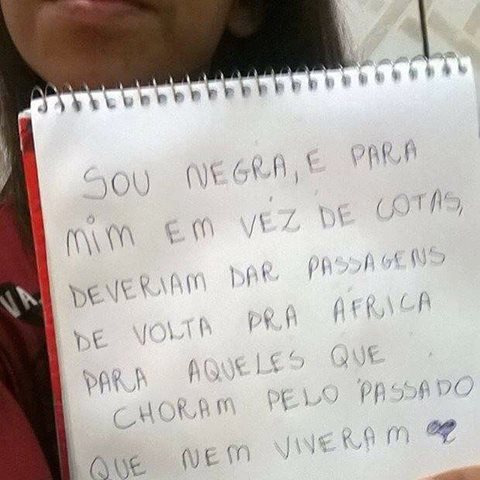 SOU NEGRA, E PARA
MIM EM VÉZ DE COTAS,
DEVERIAM DAR PASSAGENS
DE VOLTA PRA ÁFRICA
PARA AQUELES QUE
CHORAM PELO PASSADO
QUE NEM VIVERAM
VA